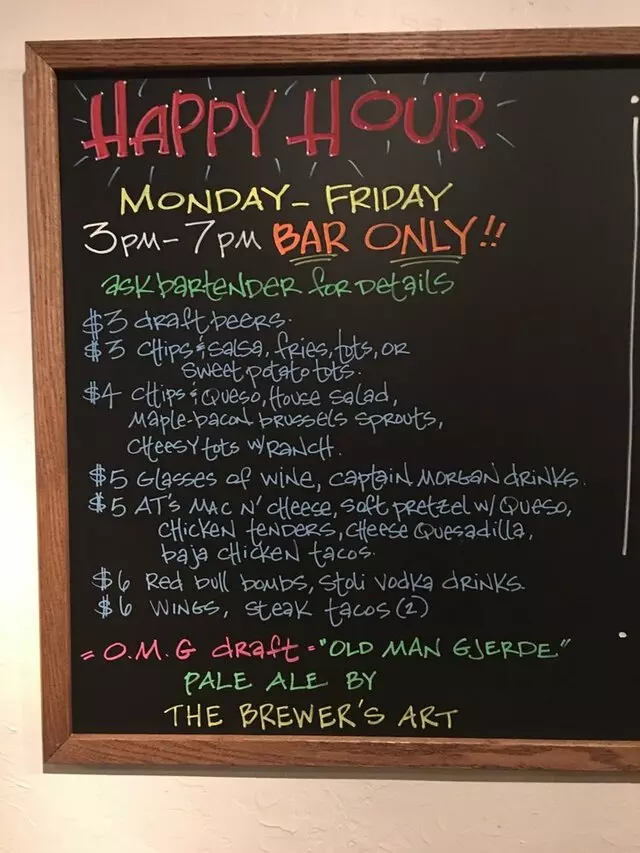 HAPPY HOUR
MONDAY - FRIDAY
3pm - 7pm BAR ONLY!!
ask bartender for details
$3 draft beers.
$3 chips & salsa, fries, tots, or
sweet potato tots.
$4 chips & queso, House salad,
Maple-bacon brussels sprouts,
cheesy tots w/ranch.
$5 Glasses of wine, captain Morgan drinks.
$5 AT's Mac n' cheese, soft pretzel w/ queso,
chicken tenders, cheese quesadilla,
baja chicken tacos.
$6 Red bull bombs, stoli vodka drinks.
$6 wings, steak tacos (2)
= O.M.G draft = "OLD MAN GJERDE"
PALE ALE BY
THE BREWER'S ART